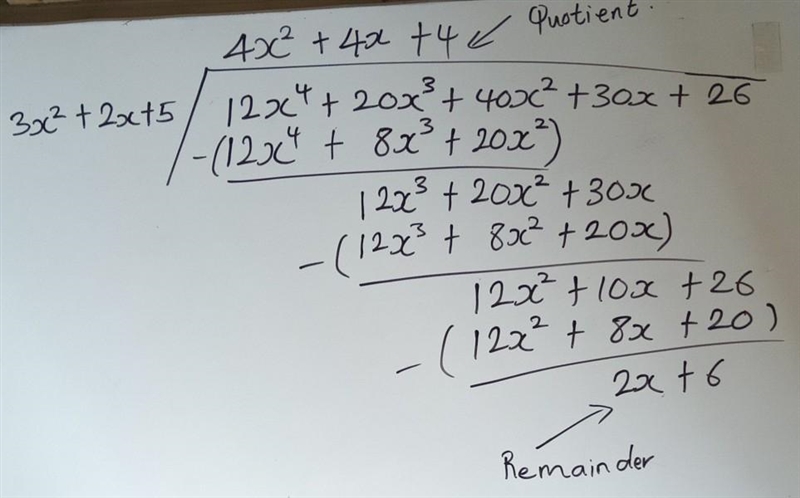 Quotient.
4x² + 4x + 4
3x² + 2x + 5 12x⁴ + 20x³ + 40x² + 30x + 26
-(12x⁴ + 8x³ + 20x²)
12x³ + 20x² + 30x
-(12x³ + 8x² + 20x)
12x² + 10x + 26
-(12x² + 8x + 20)
2x + 6
Remainder